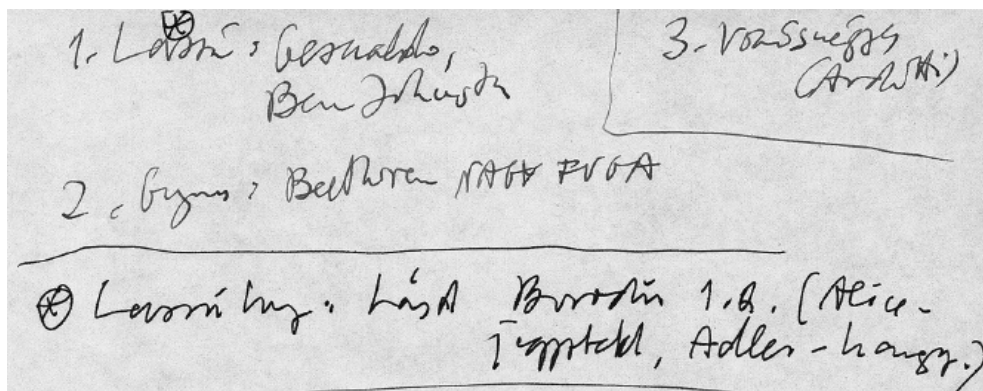 1. Lassú: Gesualdo,
Ben Johnston
3. vonósnégyes
2. Gyors: Beethoven NAGY FUGA
Lassúhoz: Lásd Borodin 1. (Alice-
Adler-hangv.)